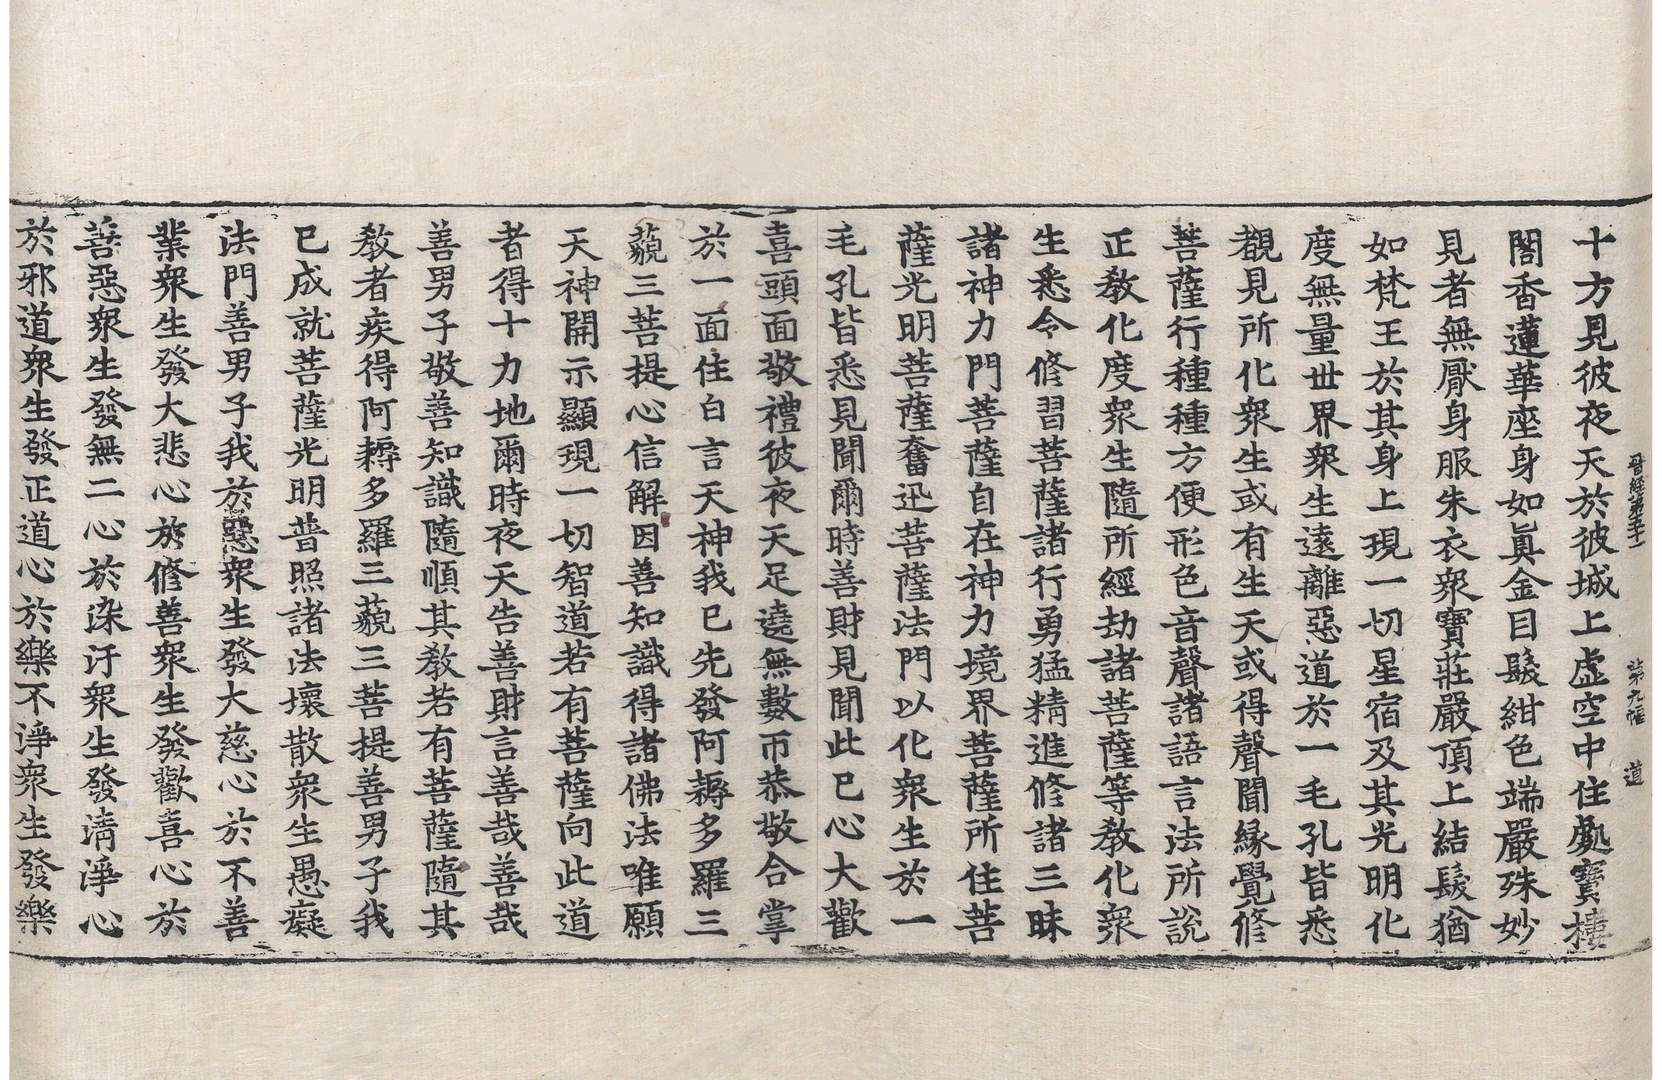 晉經第五十一 第九幅 道
十方見彼夜天於彼城上虛空中住處寶樓
閣香蓮華座身如眞金目髮紺色端嚴殊妙
見者無厭身服朱衣衆寶莊嚴頂上結髮猶
如梵王於其身上現一切星宿及其光明化
度無量世界衆生遠離惡道於一毛孔皆悉
覩見所化衆生或有生天或得聲聞緣覺修
菩薩行種種方便形色音聲諸語言法所說
正敎化度衆生隨所經劫諸菩薩等敎化衆
生悉令修習菩薩諸行勇猛精進修諸三昧
諸神力門菩薩自在神力境界菩薩所住菩
薩光明菩薩奮迅菩薩法門以化衆生於一
毛孔皆悉見聞爾時善財見聞此已心大歡
喜頭面敬禮彼夜天足遶無數帀恭敬合掌
於一面住白言天神我已先發阿耨多羅三
藐三菩提心信解因善知識得諸佛法唯願
天神開示顯現一切智道若有菩薩向此道
者得十力地爾時夜天告善財言善哉善哉
善男子敬善知識隨順其敎若有菩薩隨其
敎者疾得阿耨多羅三藐三菩提善男子我
已成就菩薩光明普照諸法壞散衆生愚癡
法門善男子我於惡衆生發大慈心於不善
業衆生發大悲心於修善衆生發歡喜心於
善惡衆生發無二心於染汙衆生發淸淨心
於邪道衆生發正道心於樂不淨衆生發樂